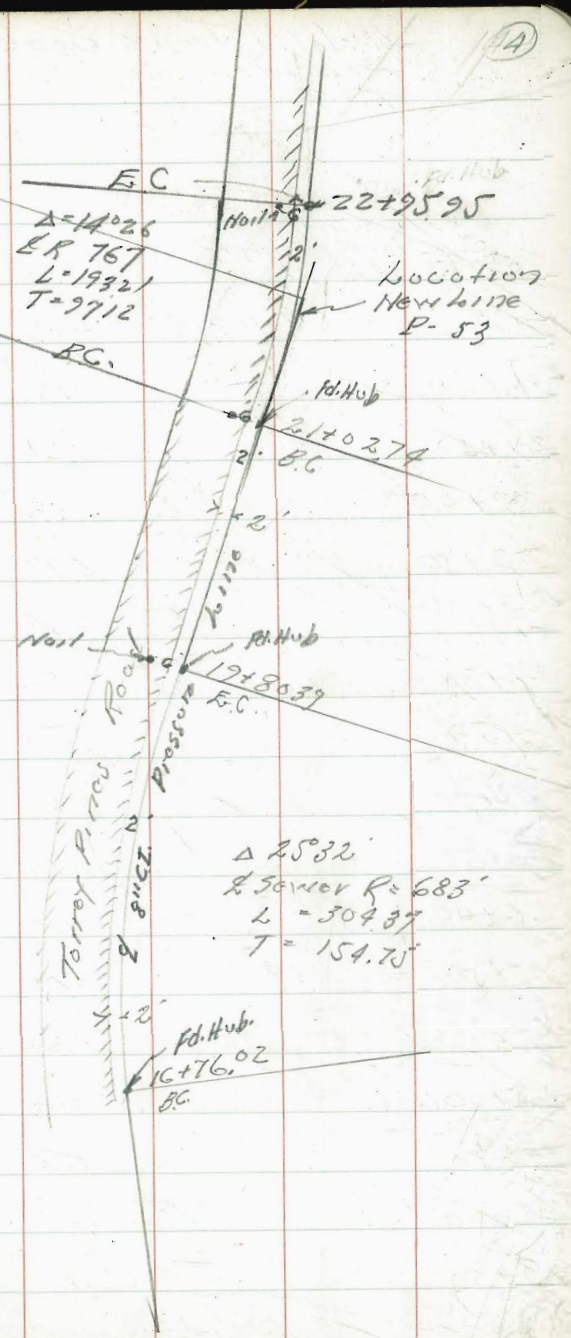 14
Fd. Hub
E.C
Nail
6
22+95.95
Δ=14°26
℄ R 767
L=193.21
T=97.12
2'
Location
New Line
P-53
B.C.
Fd. Hub
6
21+02.74
B.C
2'
2'
Line
Nail
6
Fd. Hub
19+80.39
E.C.
Torrey Pines Road
Pressure
2'
℄ 8" C.I.
Δ 25°32'
℄ Sewer R=683'
L = 304.37
T = 154.75
2'
Fd. Hub.
16+76.02
B.C.